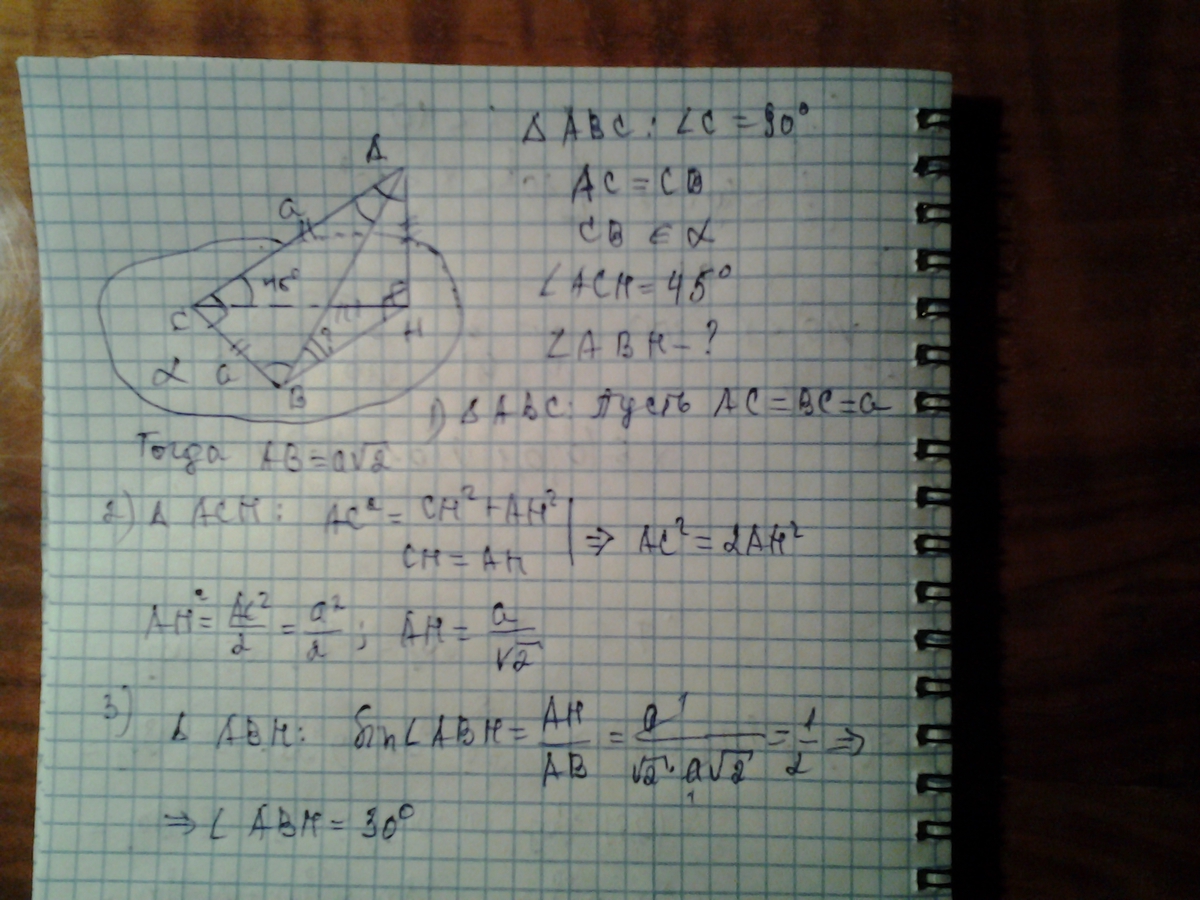 Δ ABC: ∠C = 90°
AC = CB
CB ∈ α
∠ACH = 45°
∠ABH – ?
A
a
45°
C
H
?
α a
B
1) Δ ABC: Пусть AC = BC = a
Тогда AB = a√2
2) Δ ACH: AC² = CH² + AH²
CH = AH
⇒ AC² = 2AH²
AH² = AC²/2 = a²/2 ; AH = a/√2
3) Δ ABH: Sin∠ABH = AH/AB = a/(√2 · a√2) = 1/2 ⇒
⇒ ∠ ABH = 30°